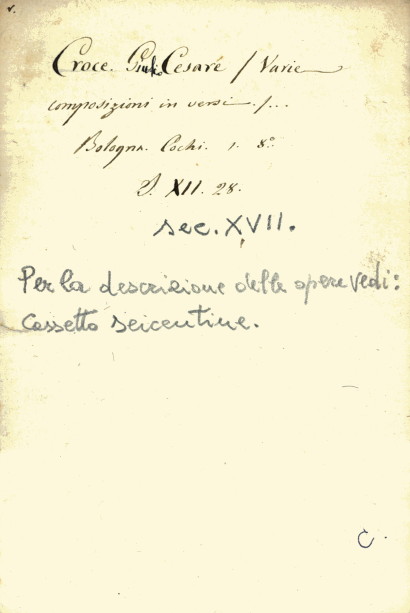 Croce. Giulio Cesare / Varie
composizioni in versi. /...
Bologna. Cochi. 1. 8°
S. XII. 28.
sec. XVII.
Per la descrizione delle opere vedi:
Cassetto seicentine.
C.